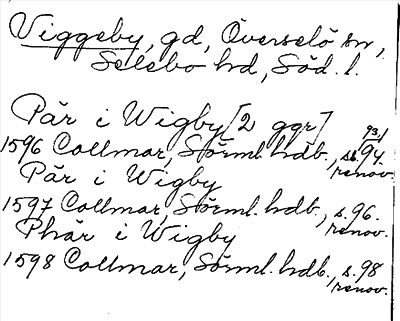 Viggeby, gd, Överselö sn,
Selebo hd, Söd. l.
Pär i Wigby [2 ggr] 93,/
1596 Collmar, Sörml. hdb., s. 94.
renov.
Pär i Wigby
1597 Collmar, Sörml. hdb., s. 96.
renov.
Phär i Wigby
1598 Collmar, Sörml. hdb., s. 98
renov.